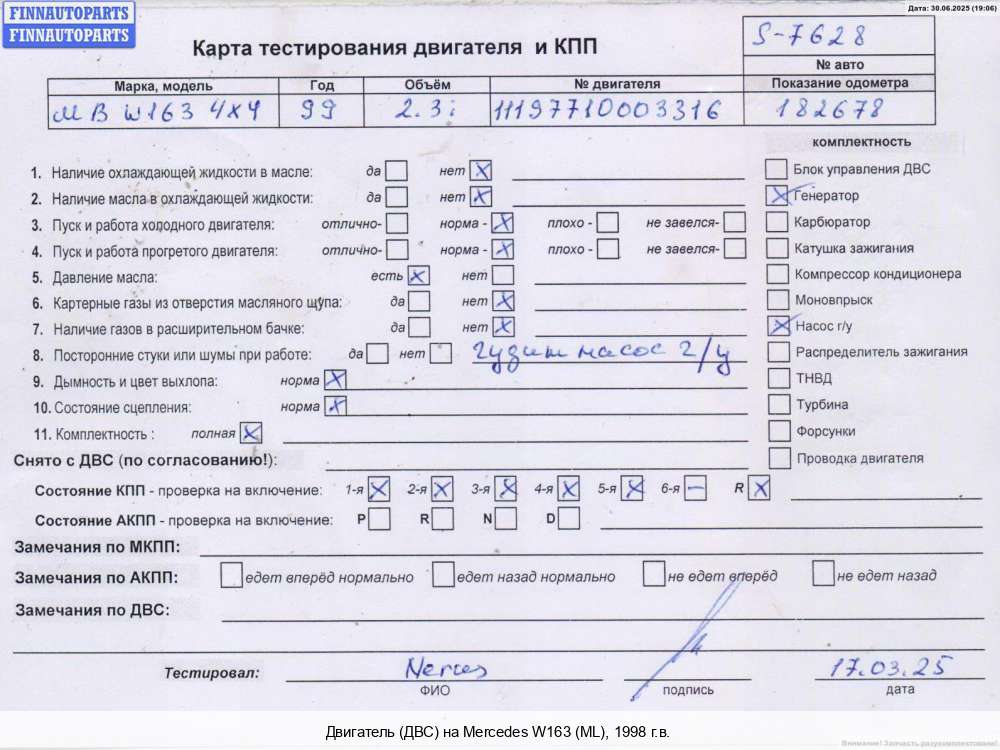 FINNAUTOPARTS
FINNAUTOPARTS
Дата: 30.06.2025 (19:06)
Карта тестирования двигателя и КПП
S-7628
№ авто
Марка, модель Год Объём № двигателя Показание одометра
MB W163 4x4 99 2.3i 11197710003316 182678
комплектность
1. Наличие охлаждающей жидкости в масле: да нет X Блок управления ДВС
2. Наличие масла в охлаждающей жидкости: да нет X X Генератор
3. Пуск и работа холодного двигателя: отлично- норма - X плохо - не завелся- Карбюратор
4. Пуск и работа прогретого двигателя: отлично- норма - X плохо - не завелся- Катушка зажигания
5. Давление масла: есть X нет Компрессор кондиционера
6. Картерные газы из отверстия масляного щупа: да нет X Моновпрыск
7. Наличие газов в расширительном бачке: да нет X X Насос г/у
8. Посторонние стуки или шумы при работе: да нет гудит насос г/у Распределитель зажигания
9. Дымность и цвет выхлопа: норма X ТНВД
10. Состояние сцепления: норма X Турбина
11. Комплектность : полная X Форсунки
Снято с ДВС (по согласованию!): Проводка двигателя
Состояние КПП - проверка на включение: 1-я X 2-я X 3-я X 4-я X 5-я X 6-я — R X
Состояние АКПП - проверка на включение: P R N D
Замечания по МКПП:
Замечания по АКПП: едет вперёд нормально едет назад нормально не едет вперёд не едет назад
Замечания по ДВС:
Тестировал: Neras 17.03.25
ФИО подпись дата
Двигатель (ДВС) на Mercedes W163 (ML), 1998 г.в.
Внимание! Запчасть разукомплектована!